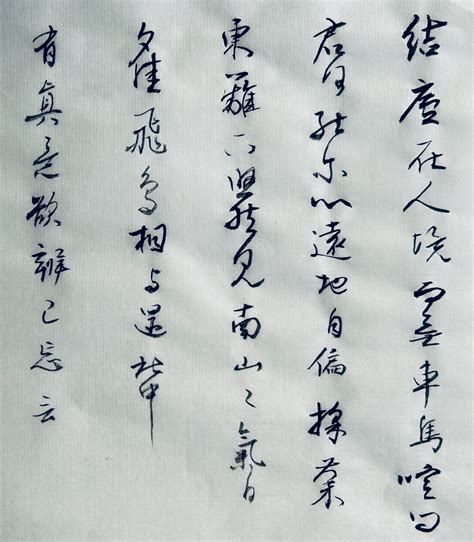 結廬在人境而無車馬喧问
君何能尔心遠地自偏採菊
東籬下悠然見南山〻氣日
夕佳飛鳥相与還此中
有真意欲辨已忘言